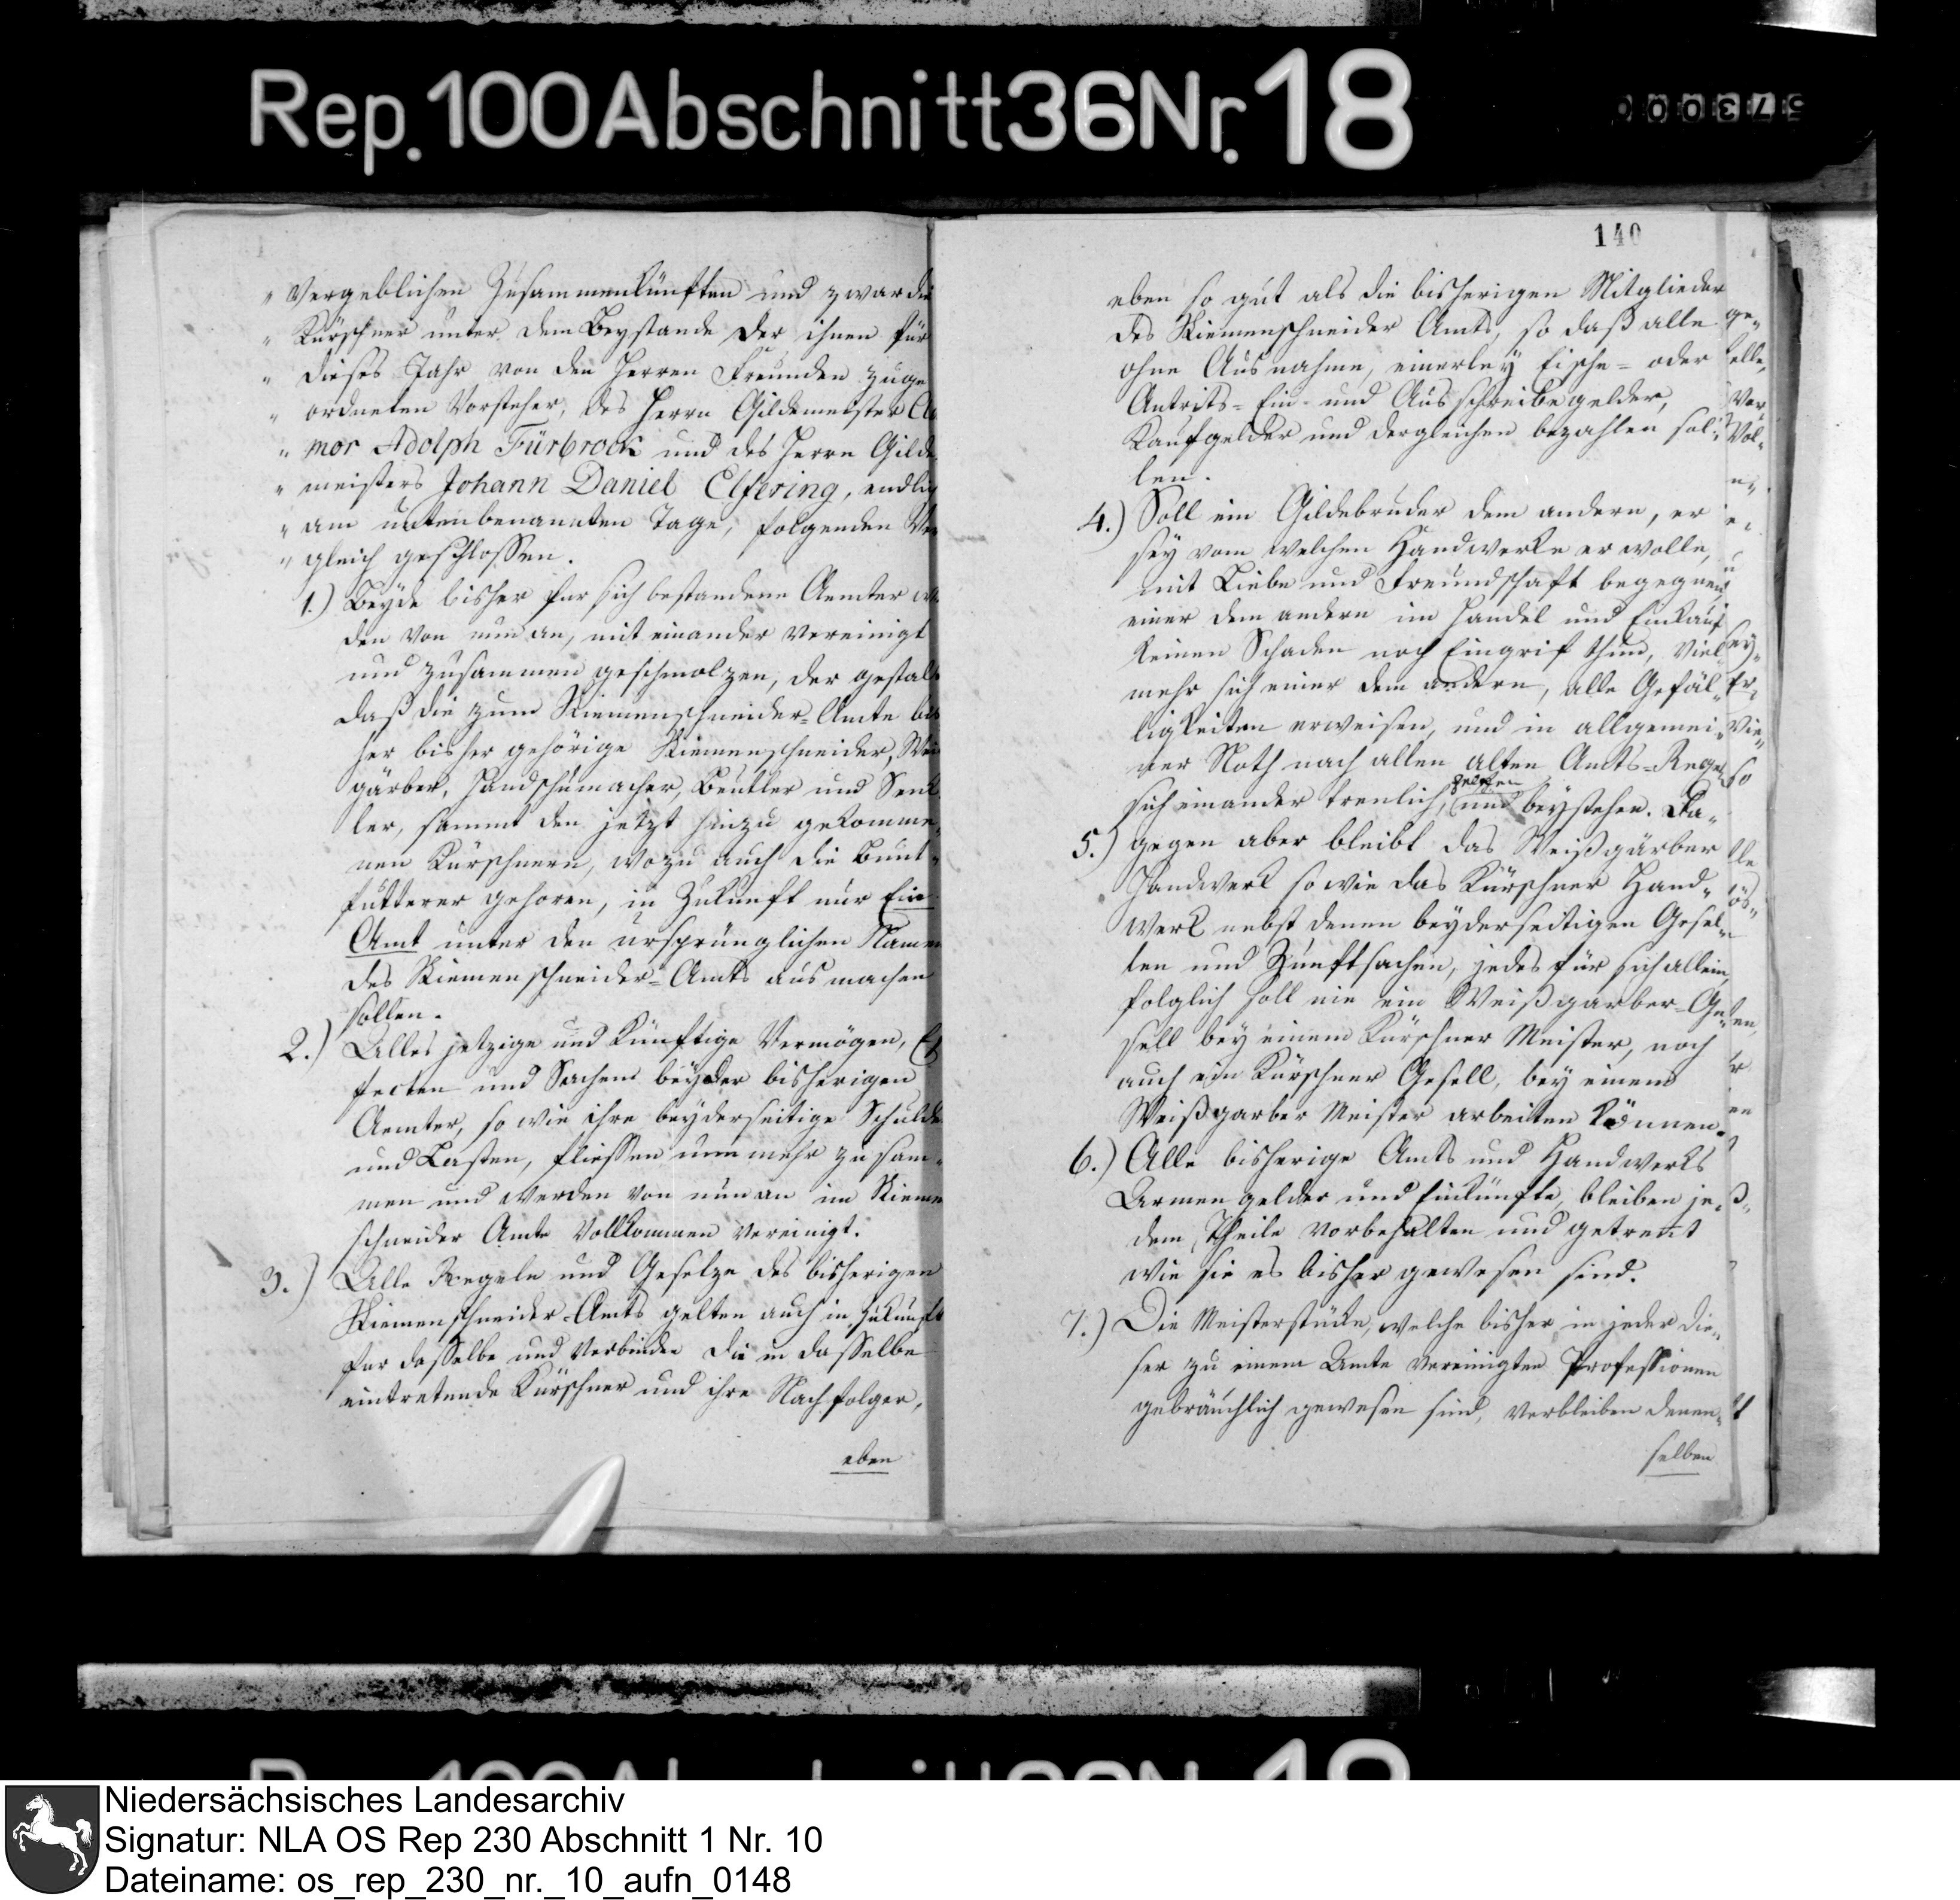 Rep. 100 Abschnitt 36 Nr. 18
" Vergeblichen Zusammenkünften und zwar die
" Kürschner unter dem Beystande der ihnen für
" dieses Jahr von den Herren Freunden zuge
" ordneten Vorsteher, des Herrn Gildemeister
" mor Adolph Fürbrock und des Herrn Gilde
" meisters Johann Daniel Elfering, endlich
" am untenbenannten Tage, folgenden Ver
" gleich geschlossen.
1.) Beyde bisher fur sich bestandene Aemter
den von nun an, mit einander vereinigt
und zusammen geschmolzen, der gestalt
daß die zum Riemenschneider-Amte bis
her bisher gehörige Riemenschneider, Weis
gärber, Handschumacher, Beutler und Senk
ler, sammt den jetzt hinzu gekomme-
nen Kürschnern, wozu auch die Bunt-
futterer gehoren, in Zukunft nur Ein
Amt unter den ursprünglichen Namen
des Riemenschneider-Amts aus machen
sollen.
2.) Alles jetzige und künftige Vermögen, Ef
fecten und Sachen beyder bisherigen
Aemter, so wie ihre beyderseitige Schulde
und Lasten, fliessen nun mehr zu sam-
men und werden von nun an im Riemen
schneider Amte Vollkommen vereinigt.
3.) Alle Regeln und Gesetze des bisherigen
Riemenschneider-Amts gelten auch in Zukunft
fur dasselbe und verbinden die in dasselbe
eintretende Kürschner und ihre Nachfolger,
eben
140
eben so gut als die bisherigen Mitglieder
des Riemenschneider Amts, so daß alle
ohne Ausnahme, einerley Esche- oder
Antrits- Ein- und Ausschreibegelder,
Kaufgelder und dergleichen bezahlen sol-
len.
4.) Soll ein Gildebruder dem andern, er
sey vom welchen Handwerke er wolle,
mit Liebe und Freundschaft begegnen,
einer dem andern im Handel und Einkauf
keinen Schaden noch Eingrif thun, viel
mehr sich einer dem andern, alle Gefäl-
ligkeiten erweisen, und in allgemei-
ner Noth nach allen alten Amts-Regel
helfen
sich einander treulich, und beystehen. Da-
5.) gegen aber bleibt das Weißgärber
Handwerk so wie das Kürschner Hand-
werk nebst denen beyderseitigen Gesel-
len und Zunftsachen, jedes für sich allein,
folglich soll nie ein Weißgarber-Ge-
sell bey einem Kürschner Meister, noch
auch ein Kürschner Gesell, bey einem
Weißgarber Meister arbeiten können.
6.) Alle bisherige Amts und Handwerks
Armengelder und Einkünfte, bleiben je-
dem Theile vorbehalten und getrent
wie sie es bisher gewesen sind.
7.) Die Meisterstücke, welche bisher in jeder die-
ser zu einem Amte vereinigten Professionen
gebräuchlich gewesen sind, verbleiben denen-
selben
Niedersächsisches Landesarchiv
Signatur: NLA OS Rep 230 Abschnitt 1 Nr. 10
Dateiname: os_rep_230_nr._10_aufn_0148